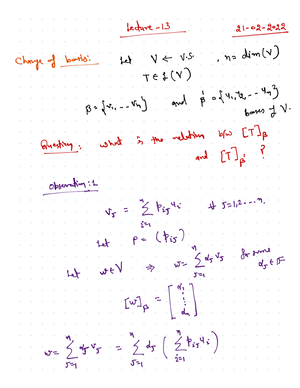 Lecture - 13    21-02-2022
Change of basis: Let V ← V.S. , n = dim(V)
T ∈ L(V)
β = {v₁, ... vₙ} and β' = {u₁, u₂, ... uₙ}
bases of V.
Question: what is the relation b/w [T]_β
and [T]_β' ?
Observation: 1
v_j = Σ_{i=1}^{n} p_{ij} u_i ∀ j = 1, 2, ... n.
Let P = (p_{ij})
Let w ∈ V ⇒ w = Σ_{j=1}^{n} α_j v_j for some
α_j ∈ F
[w]_β = [α₁ ⋮ αₙ]
w = Σ_{j=1}^{n} α_j v_j = Σ_{j=1}^{n} α_j ( Σ_{i=1}^{n} p_{ij} u_i )